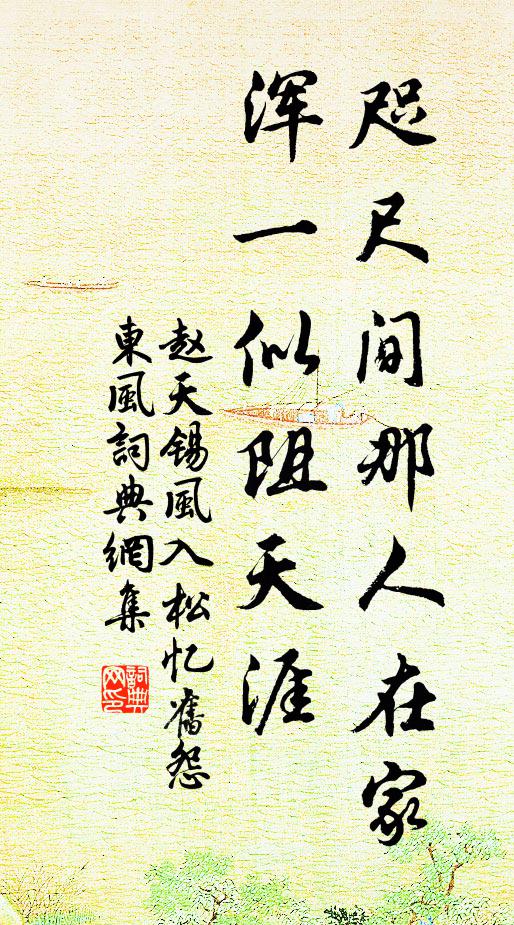 咫尺间那人在家
浑一似阻天涯
赵天锡風入松忆舊怨
東風詞典網集
詞典网印